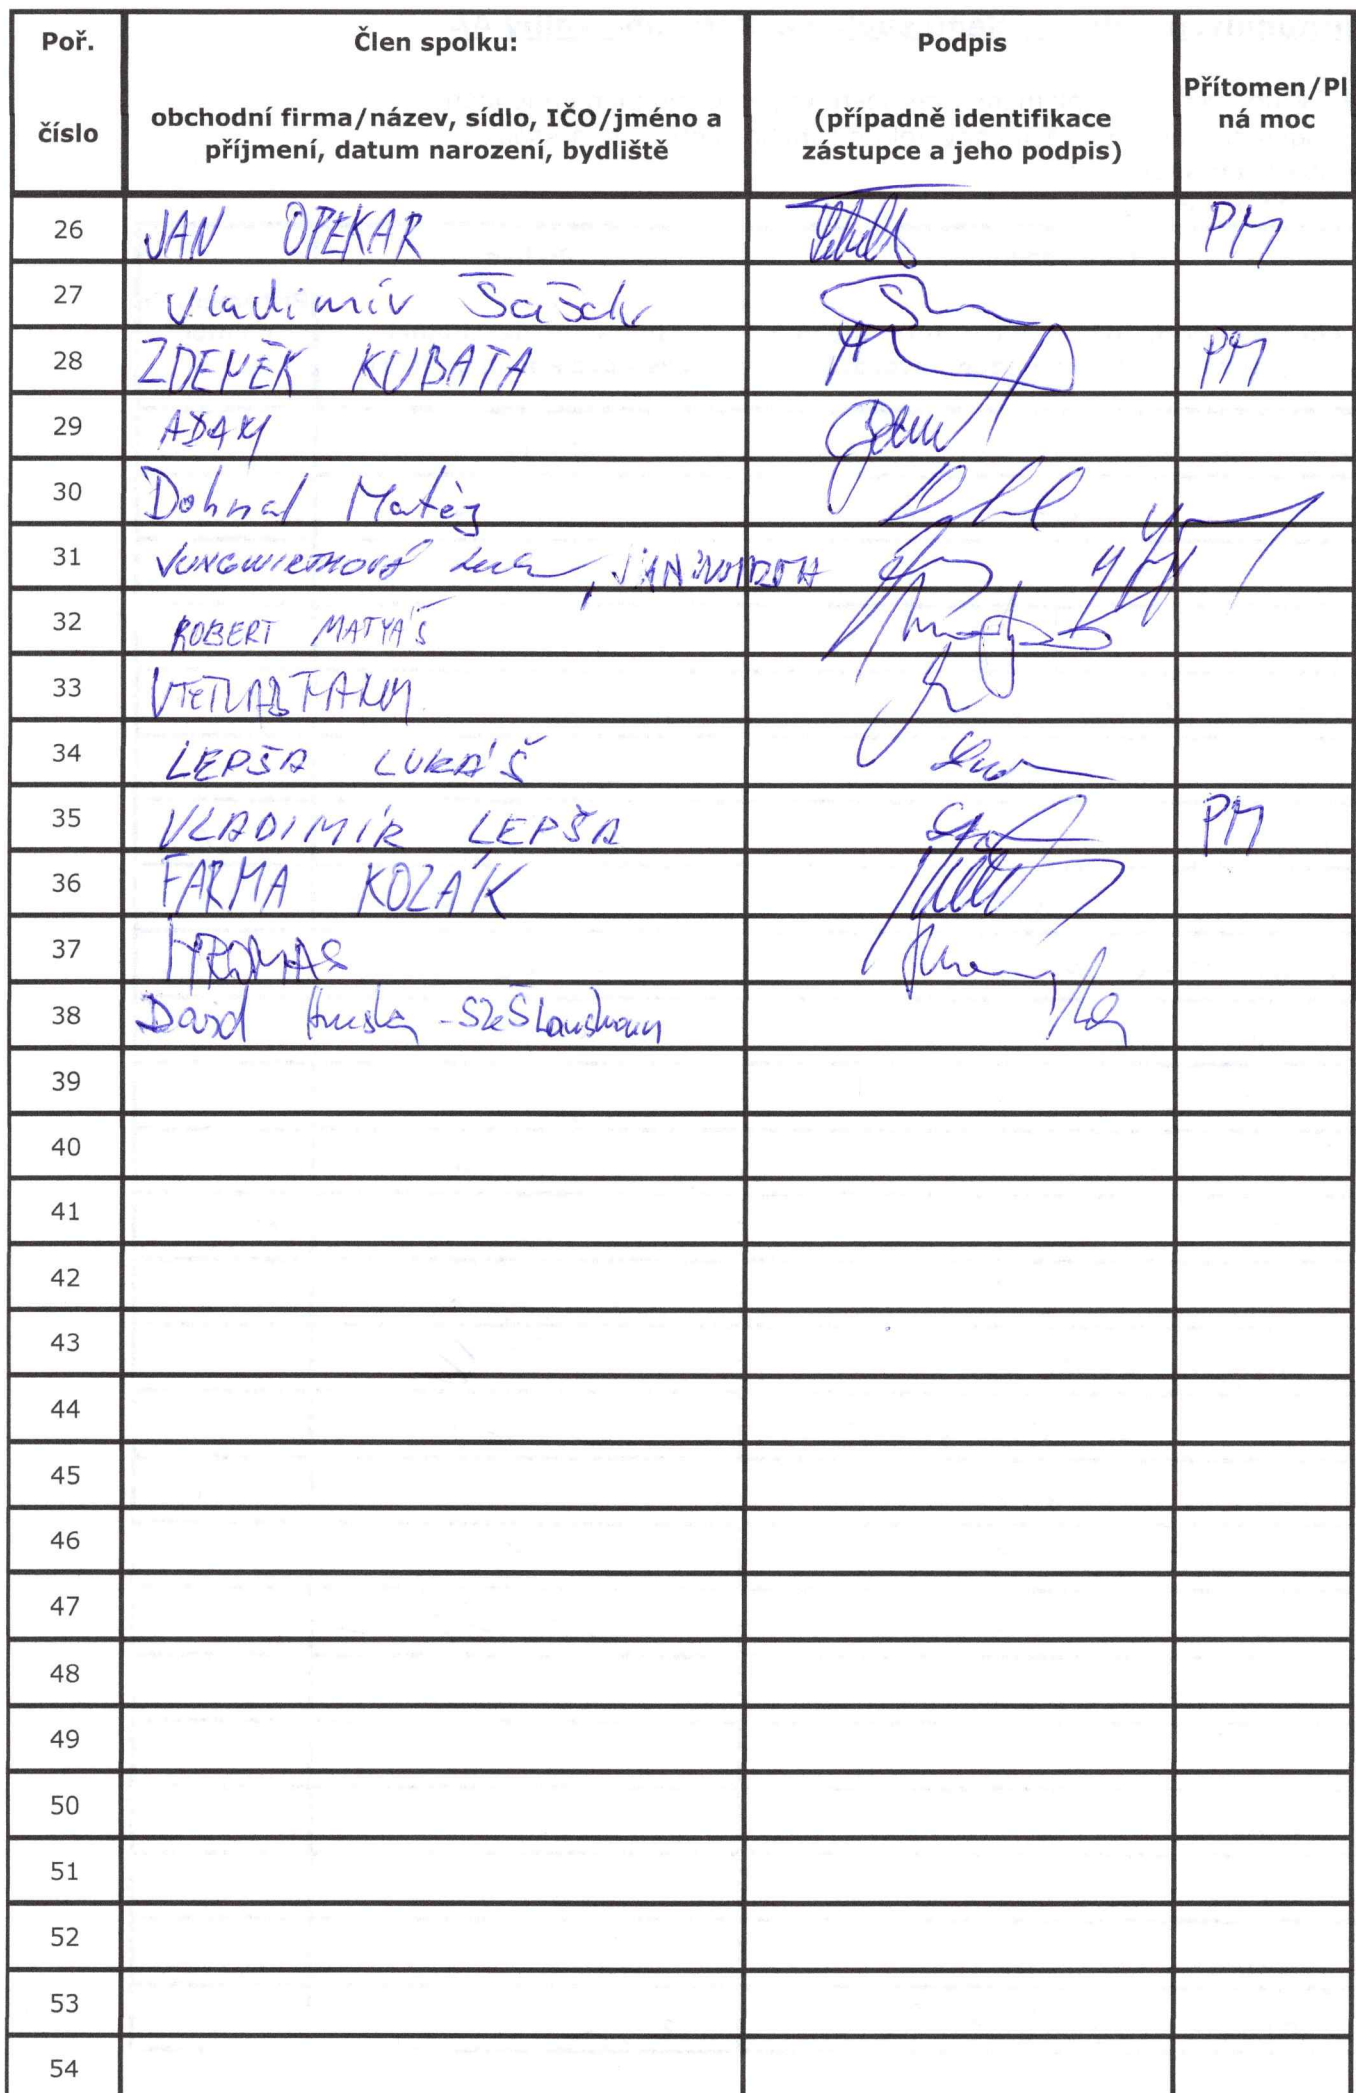 Poř.
číslo
Člen spolku:
obchodní firma/název, sídlo, IČO/jméno a
příjmení, datum narození, bydliště
Podpis
(případně identifikace
zástupce a jeho podpis)
Přítomen/Pl
ná moc
26 JAN OPEKAR PM
27 Vladimír Šašek
28 ZDENĚK KUBATA PM
29 ADAM
30 Dohnal Matěj
31 JUNGWIRTHOVÁ JAN
32 ROBERT MATYÁŠ
33
34 LEPŠA LUKÁŠ
35 VLADIMÍR LEPŠA PM
36 FARMA KOZÁK
37 HROMAS
38 David
39
40
41
42
43
44
45
46
47
48
49
50
51
52
53
54